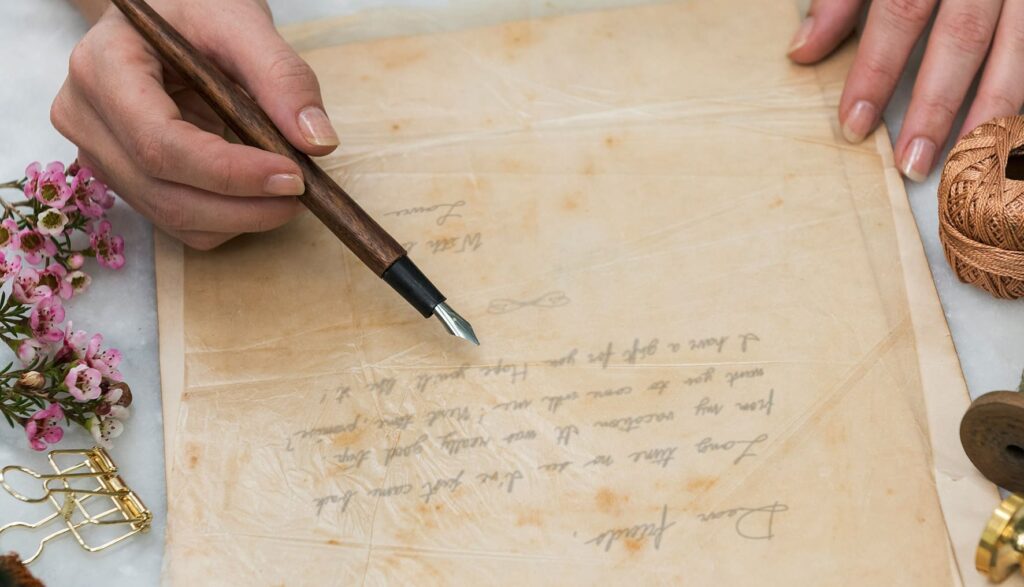 Dear friends,
Long time no see I've just came back
from my vacation It was really good trip.
want you to come with me! Next time, promise?
I have a gift for you Hope you'll like it!
With